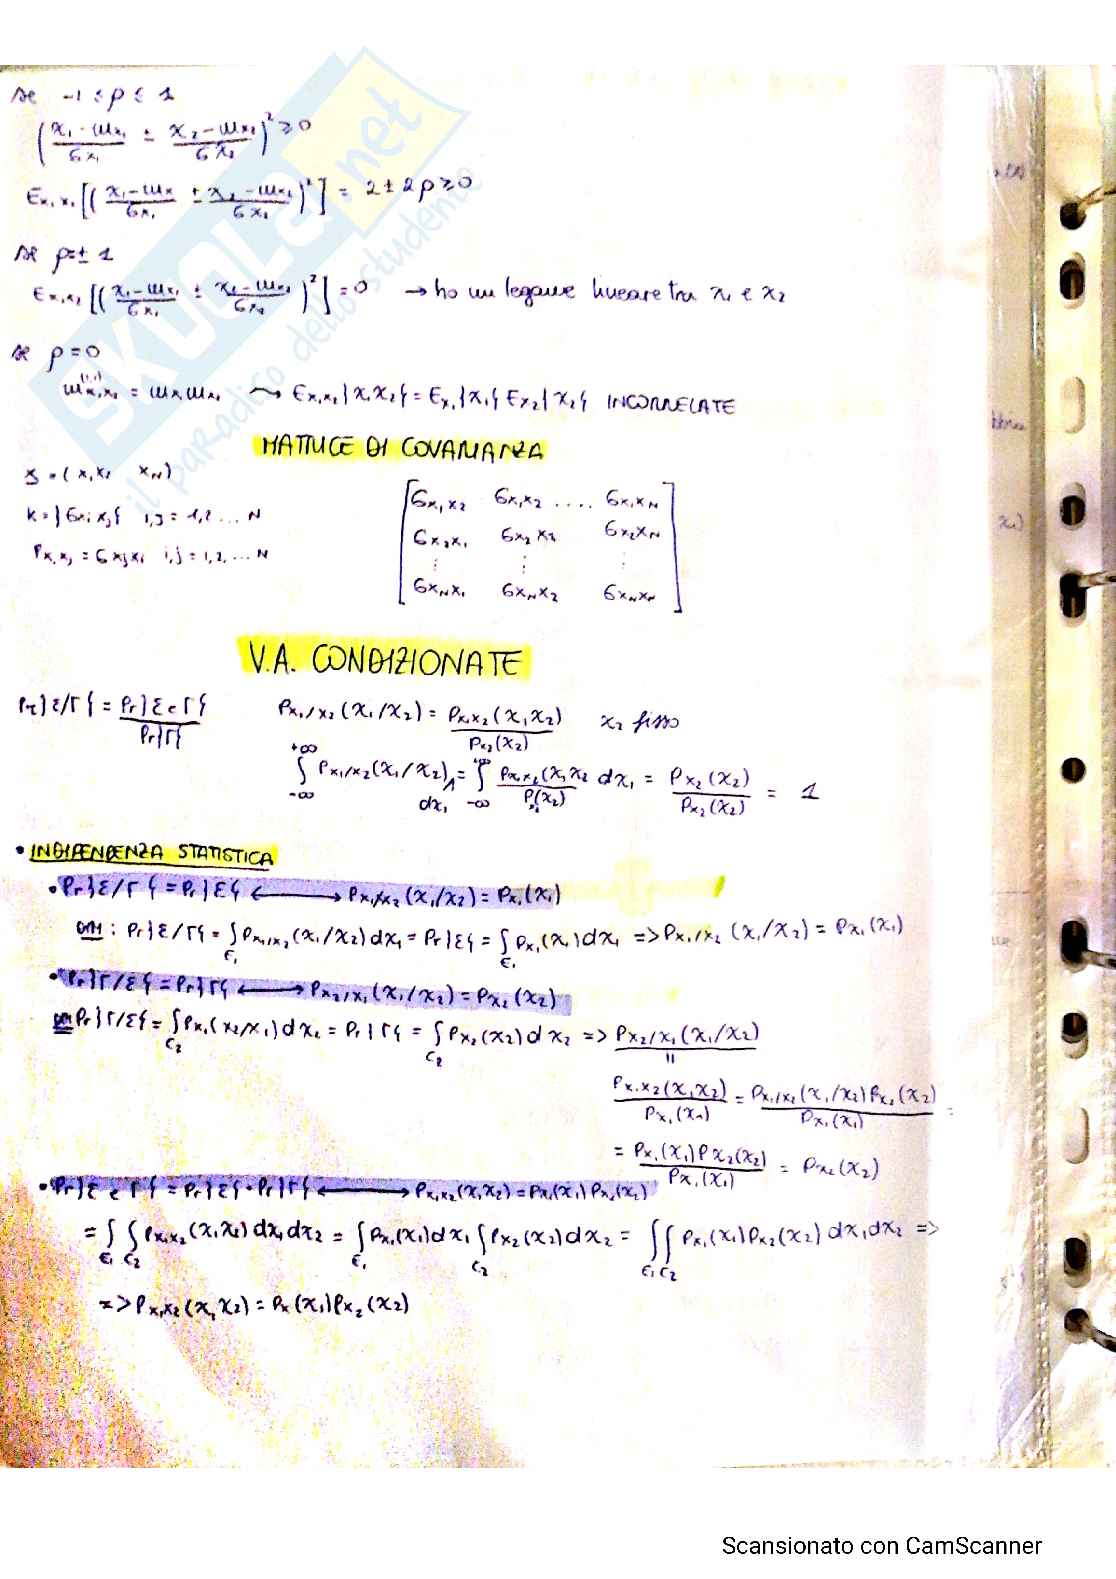 se -1 ≤ ρ ≤ 1
( (x₁ - mx₁)/σx₁ ± (x₂ - mx₂)/σx₂ )² ≥ 0
Ex₁x₂ [ ( (x₁ - mx₁)/σx₁ ± (x₂ - mx₂)/σx₂ )² ] = 2 ± 2ρ ≥ 0
se ρ = ± 1
Ex₁x₂ [ ( (x₁ - mx₁)/σx₁ ± (x₂ - mx₂)/σx₂ )² ] = 0 → ho un legame lineare tra x₁ e x₂
se ρ = 0
m(1,1)x₁x₂ = mx₁ mx₂ ⇝ Ex₁x₂{x₁x₂} = Ex₁{x₁} Ex₂{x₂} INCORRELATE
MATRICE DI COVARIANZA
x = (x₁ x₂ xN)
K = {σxi xj} i,j = 1,2 ... N
ρxi xj = σxj xi i,j = 1,2,... N
σx₁x₂ σx₁x₂ .... σx₁xN
σx₂x₁ σx₂x₂ σx₂xN
⋮ ⋮ ⋮
σxNx₁ σxNx₂ σxNxN
V.A. CONDIZIONATE
Pr{ε/Γ} = Pr{ε e Γ}/Pr{Γ} px₁/x₂(x₁/x₂) = px₁x₂(x₁x₂)/px₂(x₂) x₂ fisso
∫₋∞^+∞ px₁/x₂(x₁/x₂) dx₁ = ∫₋∞^+∞ px₁x₂(x₁x₂/p(x₂)x₂ dx₁ = px₂(x₂)/px₂(x₂) = 1
• INDIPENDENZA STATISTICA
• Pr{ε/Γ} = Pr{ε} ⟷ px₁/x₂(x₁/x₂) = px₁(x₁)
DIM: Pr{ε/Γ} = ∫ε₁ px₁/x₂(x₁/x₂) dx₁ = Pr{ε} = ∫ε₁ px₁(x₁) dx₁ => px₁/x₂(x₁/x₂) = px₁(x₁)
• Pr{Γ/ε} = Pr{Γ} ⟷ px₂/x₁(x₁/x₂) = px₂(x₂)
DIM Pr{Γ/ε} = ∫C₂ px₁(x₂/x₁) dx₂ = Pr{Γ} = ∫C₂ px₂(x₂) dx₂ => px₂/x₁(x₁/x₂)
=
px₁x₂(x₁x₂)/px₁(x₁) = px₁/x₂(x₁/x₂) px₂(x₂)/px₁(x₁) =
= px₁(x₁) px₂(x₂)/px₁(x₁) = px₂(x₂)
• Pr{ε e Γ} = Pr{ε} · Pr{Γ} ⟷ px₁x₂(x₁x₂) = px₁(x₁) px₂(x₂)
= ∫ε₁ ∫C₂ px₁x₂(x₁x₂) dx₁dx₂ = ∫ε₁ px₁(x₁) dx₁ ∫C₂ px₂(x₂) dx₂ = ∫∫ε₁C₂ px₁(x₁) px₂(x₂) dx₁dx₂ =>
=> px₁x₂(x₁x₂) = px(x₁) px₂(x₂)
SKUOLA.net
il paradiso dello studente
Scansionato con CamScanner